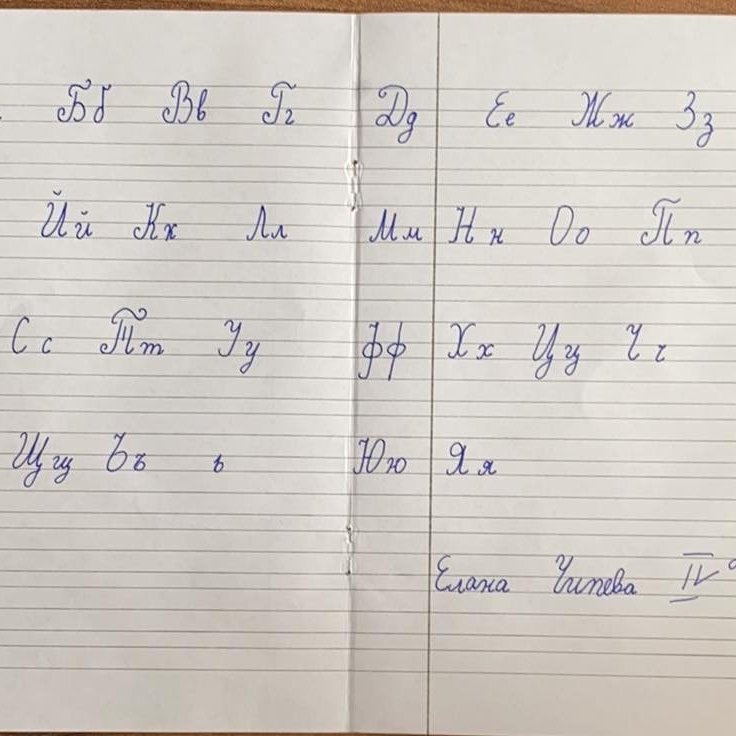 Бб Вв Гг Дд Ее Жж Зз
Йй Кк Лл Мм Нн Оо Пп
Сс Тт Уу Фф Хх Цц Чч
Щщ Ъъ ь Юю Яя
Елана Чипева IV